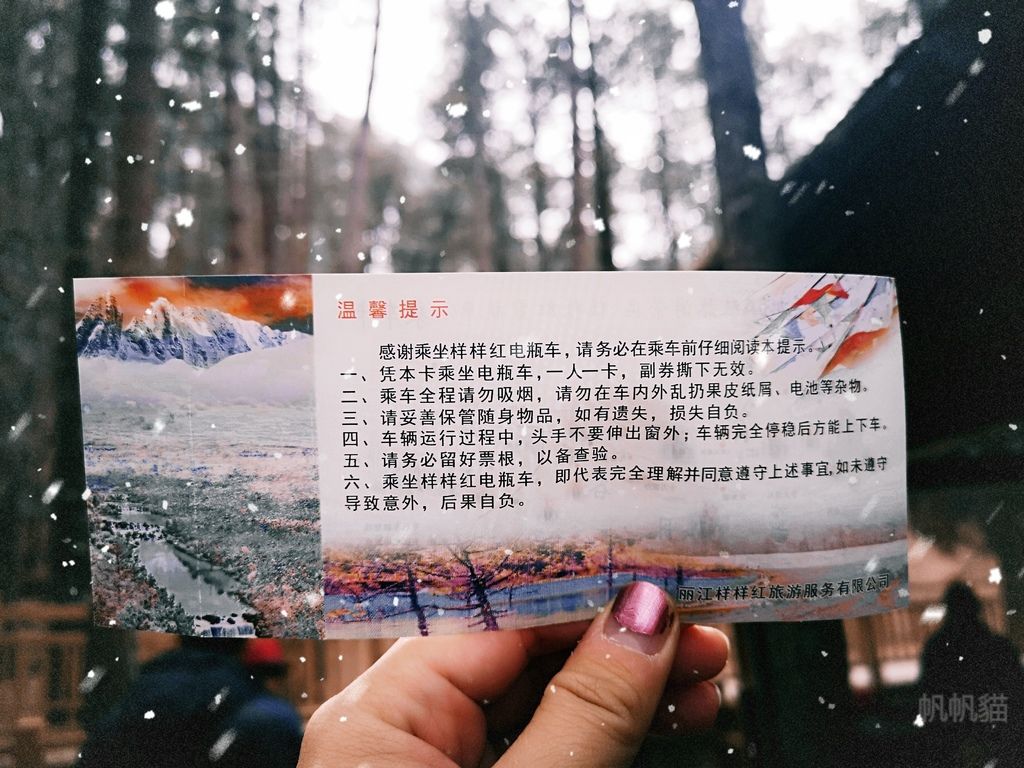 温馨提示
感谢乘坐样样红电瓶车，请务必在乘车前仔细阅读本提示。
一、凭本卡乘坐电瓶车，一人一卡，副券撕下无效。
二、乘车全程请勿吸烟，请勿在车内外乱扔果皮纸屑、电池等杂物。
三、请妥善保管随身物品，如有遗失，损失自负。
四、车辆运行过程中，头手不要伸出窗外；车辆完全停稳后方能上下车。
五、请务必留好票根，以备查验。
六、乘坐样样红电瓶车，即代表完全理解并同意遵守上述事宜，如未遵守
导致意外，后果自负。
丽江样样红旅游服务有限公司
帆帆貓